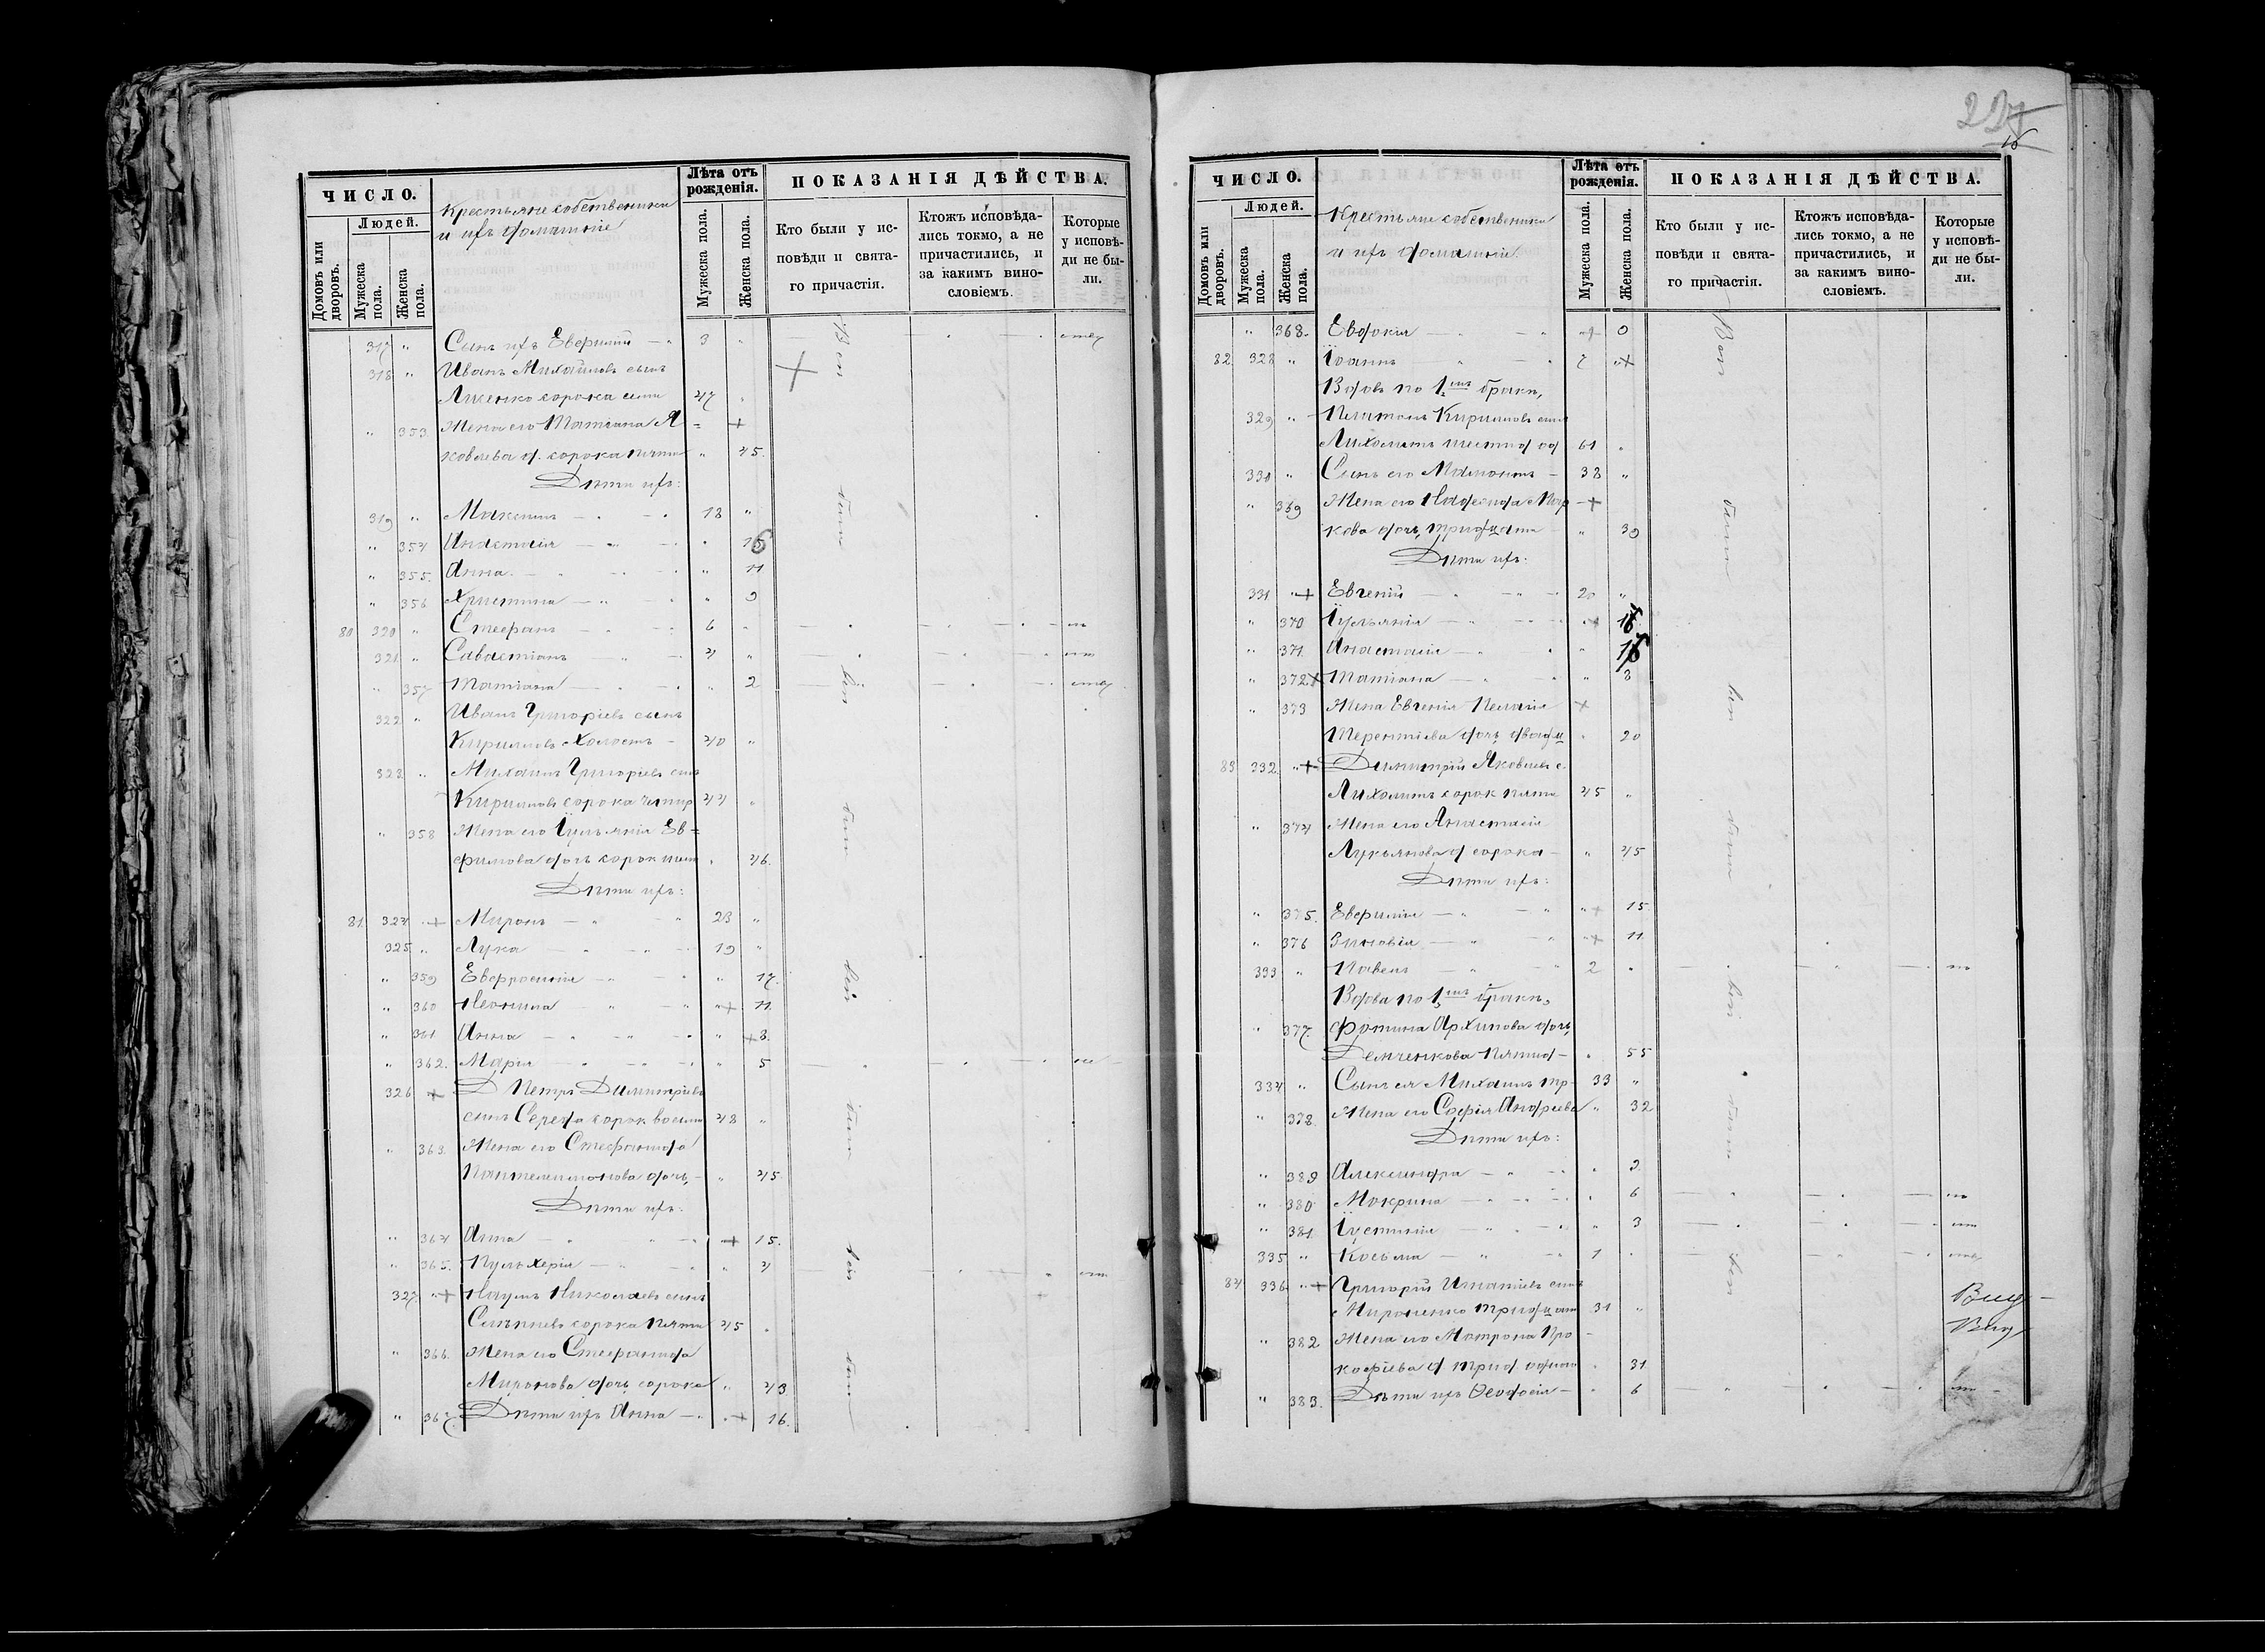 227
16
ЧИСЛО.
Людей.
Домовъ или дворовъ.
Мужеска пола.
Женска пола.
Крестьяне собственники
и ихъ домашніе
Лѣта отъ рожденія.
Мужеска пола.
Женска пола.
ПОКАЗАНІЯ ДѢЙСТВА.
Кто были у исповѣди и святаго причастія.
Ктожъ исповѣдались токмо, а не причастились, и за какимъ винословіемъ.
Которые у исповѣди не были.
317 " Сынъ ихъ 3 "
318 " Иванъ Михайловъ сынъ
сорока семи 47 "
" 353 Жена его Татіана Я
ковлева д. сорока пяти " 45.
Дѣти ихъ:
319 " Максимъ 18 "
" 354 Анастасія " 16
" 355. Анна " 11
" 356 Христина " 9
80 320 " Стефанъ 6 "
321 " Савастіанъ 4 "
" 357 Татіана " 2
322 " Иванъ Григоріевъ сынъ
Кирилловъ Холостъ 40 "
323 " Михаилъ Григоріевъ сынъ
Кирилловъ сорока четыр 44 "
" 358 Жена его Іуліянія Ев=
фимова дочь сорок шест " 46.
Дѣти ихъ:
81 324 Миронъ 23 "
325 " Лука 19 "
" 359 Евфросинія " 17.
" 360 Неонила " 11.
" 361 Анна " 8.
" 362. Марія " 5
326 Петръ Димитріевъ
сынъ Середа сорок восьми 48 "
" 363. Жена его Стефанида
Пантелеимонова дочь 45
Дѣти ихъ:
" 364 Анна 15.
" 365. Пульхерія " 4
327 Наумъ Николаевъ сынъ
сорока пяти 45
" 366. Жена его Стефанида
Миронова дочь сорока " 43
" 367. Дѣти ихъ Анна 16.
ЧИСЛО.
Людей.
Домовъ или дворовъ.
Мужеска пола.
Женска пола.
Крестьяне собственники
и ихъ домашніи
Лѣта отъ рожденія.
Мужеска пола.
Женска пола.
ПОКАЗАНІЯ ДѢЙСТВА.
Кто были у исповѣди и святаго причастія.
Ктожъ исповѣдались токмо, а не причастились, и за какимъ винословіемъ.
Которые у исповѣди не были.
" 368. Евдокія
82 328 " Іоаннъ 7
Вдовъ по 1мъ бракѣ,
329 " Платонъ Кирилловъ сынъ
Лихолитъ шестид од 61 "
330 " Сынъ его Мамонтъ 38 "
" 369 Жена его Надежда Мар
кова дочь, тридцати " 39
Дѣти ихъ:
331 Евгеній 20 "
" 370 Іуліянія
" 371 Анастасія " 16
" 372 Татіана " 8
" 373 Жена Евгенія Пелагія
Терентіева дочь двадц " 20
83 332 Димитрій Яковлевъ с.
Лихолитъ сорок пяти 45 "
" 374 Жена его Анастасія
Лукьянова д сорока " 45
Дѣти ихъ:
" 375. 15
" 376 Зиновія 11
333 " Павелъ 2 "
Вдова по 1мъ бракѣ,
" 377. Фотина Архипова дочь,
Демченкова пятид " 55
334 " Сынъ ея Михаилъ тр 33 "
" 378. Жена его Софія Андреева " 32
Дѣти ихъ:
" 389 Александра " 9
" 380 Макрина " 6
" 381 Іустинія " 3
335 " Косьма 1 "
84 336 Григорій Игнатіевъ сынъ
Мироненко тридцати 31 "
" 382 Жена его Матрона Про
кофіева д. трид. одного " 31
" 383. Дѣти ихъ Ѳеодосія " 6